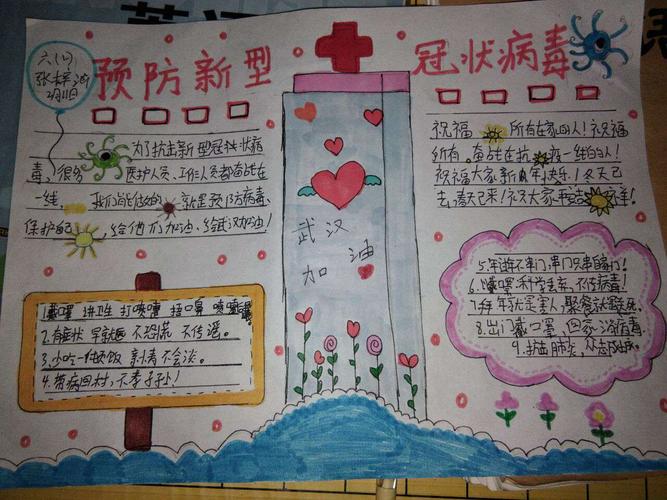 六(1)
张梓
2月11日
预防新型
冠状病毒
为了抗击新型冠状病
毒,很多医护人员、工作人员都奋战在
一线。我们能做的就是预防病毒、
保护自己,给他们加油、给武汉加油!
1.戴口罩 讲卫生 打喷嚏 捂口鼻
2.有症状 早就医 不恐慌 不传谣。
3.小吃一种饭 新春不会淡。
4.带病回村,不孝子孙!
武汉
加油
祝福 所有在家的人!祝福
所有奋战在抗疫一线的人!
祝福大家新年快乐!冬天已
去,春天已来!祝大家
5.年逛不串门,串门只串自家门!
6.戴口罩,科学 ,不传病毒!
7.拜年就是害人,聚餐就是找死。
8.出门戴口罩,回家 毒
9. 肺炎,众志成城。